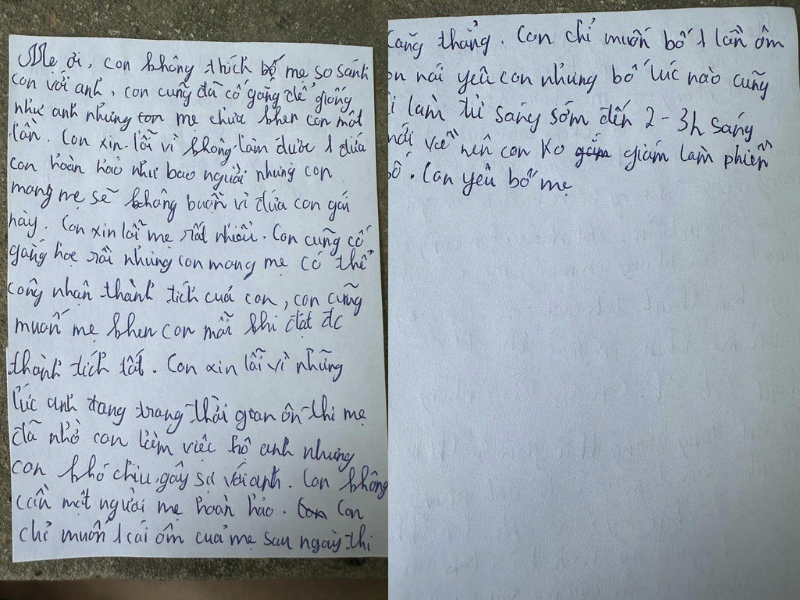 Mẹ ơi, con không thích bố mẹ so sánh
con với anh, con cũng đã cố gắng để giống
như anh nhưng mẹ chưa khen con một
lần. Con xin lỗi vì không làm được 1 đứa
con hoàn hảo như bao người nhưng con
mong mẹ sẽ không buồn vì đứa con gái
này. Con xin lỗi mẹ rất nhiều. Con cũng cố
gắng học rồi nhưng con mong mẹ có thể
công nhận thành tích của con, con cũng
muốn mẹ khen con mỗi khi đạt đc
thành tích tốt. Con xin lỗi vì những
lúc anh đang trong thời gian ôn thi mẹ
đã nhờ con làm việc hộ anh nhưng
con khó chịu, gây sự với anh. Con không
cần một người mẹ hoàn hảo. Con Con
chỉ muốn 1 cái ôm của mẹ sau ngày thi
căng thẳng. Con chỉ muốn bố 1 lần ôm
con nói yêu con nhưng bố lúc nào cũng
đi làm từ sáng sớm đến 2-3h sáng
mới về nên con ko giám làm phiền
bố. Con yêu bố mẹ